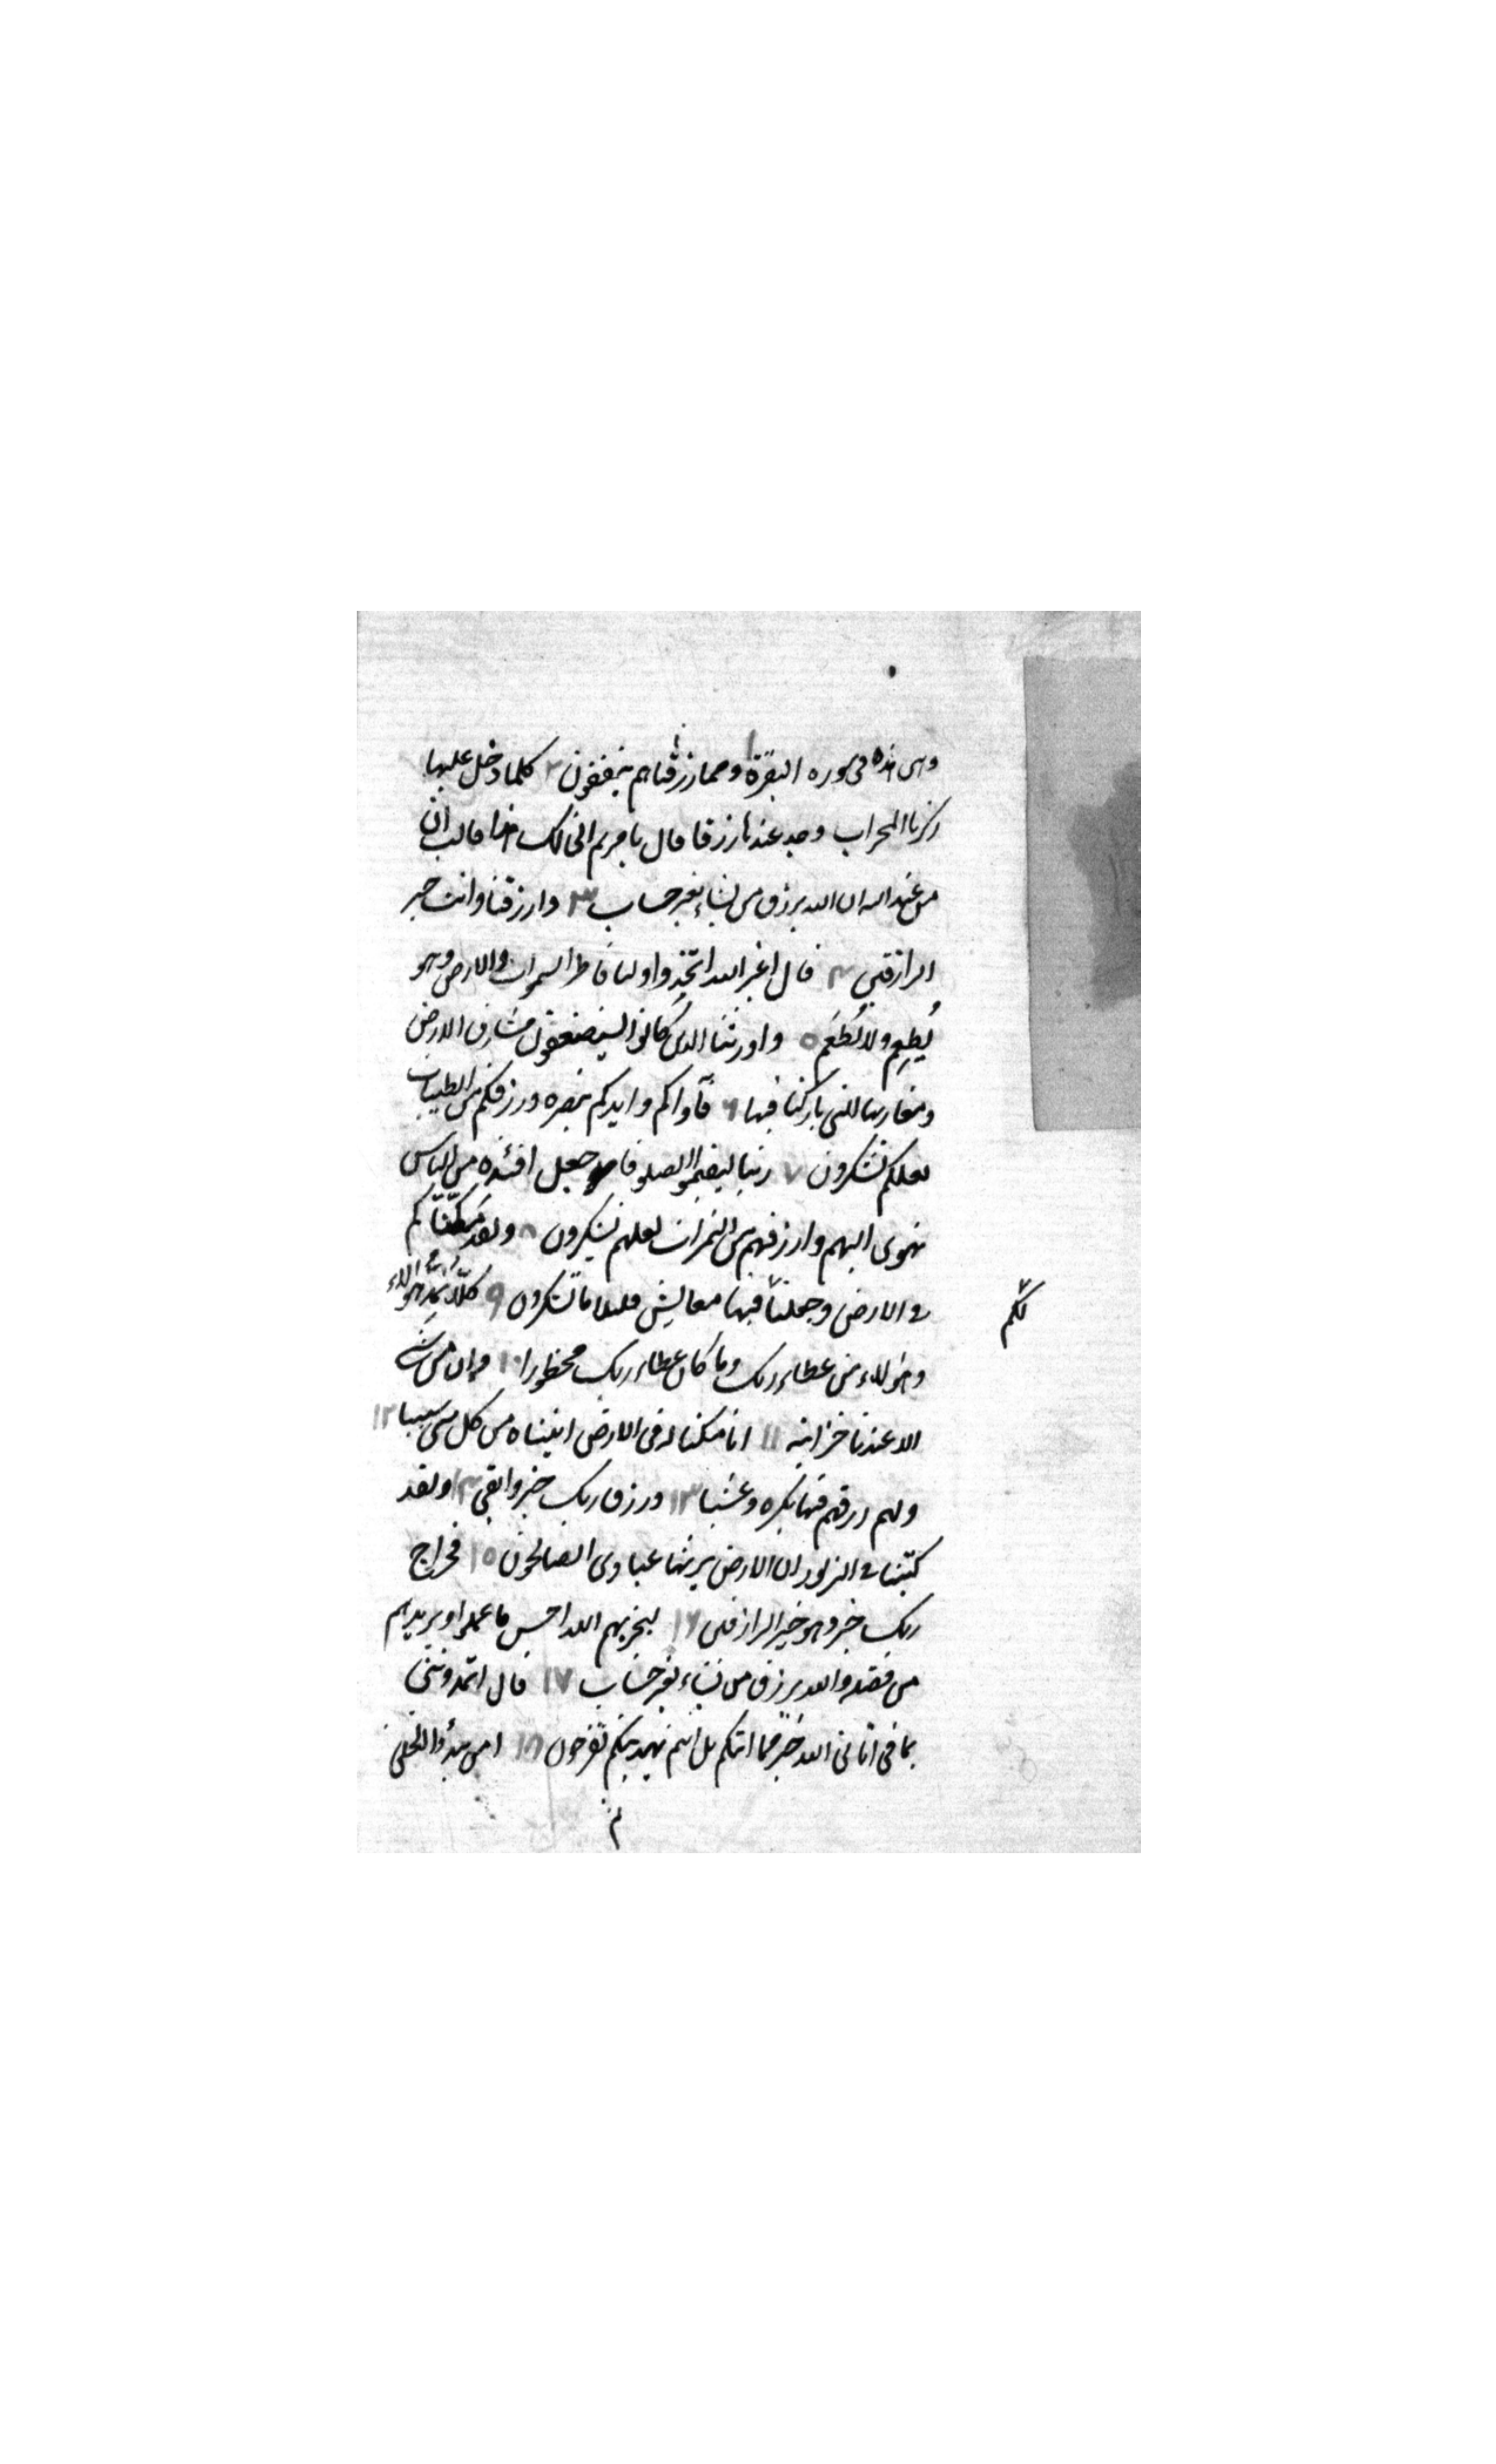 وهى هذه فى سوره البقرة ١ ومما رزقناهم ينفقون ٢ كلما دخل عليها
زكريا المحراب وجد عندها رزقا قال يا مريم انى لك هذا قالت
من عند الله ان الله يرزق من يشاء بغير حساب ٣ وارزقنا وانت خير
الرازقين ٤ قال اغير الله اتخذ وليا فاطر السموات والارض وهو
يُطعِم ولا يُطعَم ٥ واورثنا الذين كانوا يستضعفون مشارق الارض
ومغاربها التى باركنا فيها ٦ فآواكم وايدكم بنصره ورزقكم من الطيبات
لعلكم تشكرون ٧ ربنا ليقيموا الصلوة فاجعل افئدة من الناس
تهوى اليهم وارزقهم من الثمرات لعلهم يشكرون ٨ ولقد مكّنّاكم
فى الارض وجعلنا فيها معايش قليلا ما تشكرون ٩ كلّا نمدّ هؤلاء
لكم
وهؤلاء من عطاء ربك وما كان عطاء ربك محظورا ١٠ وان من شئ
الا عندنا خزائنه ١١ انا مكنا له فى الارض اتيناه من كل شئ سببا ١٢
ولهم رزقهم فيها بكره وعشيا ١٣ ورزق ربك خير وابقى ١٤ ولقد
كتبنا فى الزبور ان الارض يرثها عبادى الصالحون ١٥ فخراج
ربك خير وهو خير الرازقين ١٦ ليجزيهم الله احسن ما عملوا ويزيدهم
من فضله والله يرزق من يشاء بغير حساب ١٧ قال اتمدونني
بما فى اتانى الله خير مما اتيكم بل انتم بهديتكم تفرحون ١٨ امن يبدؤا الخلق
ثم